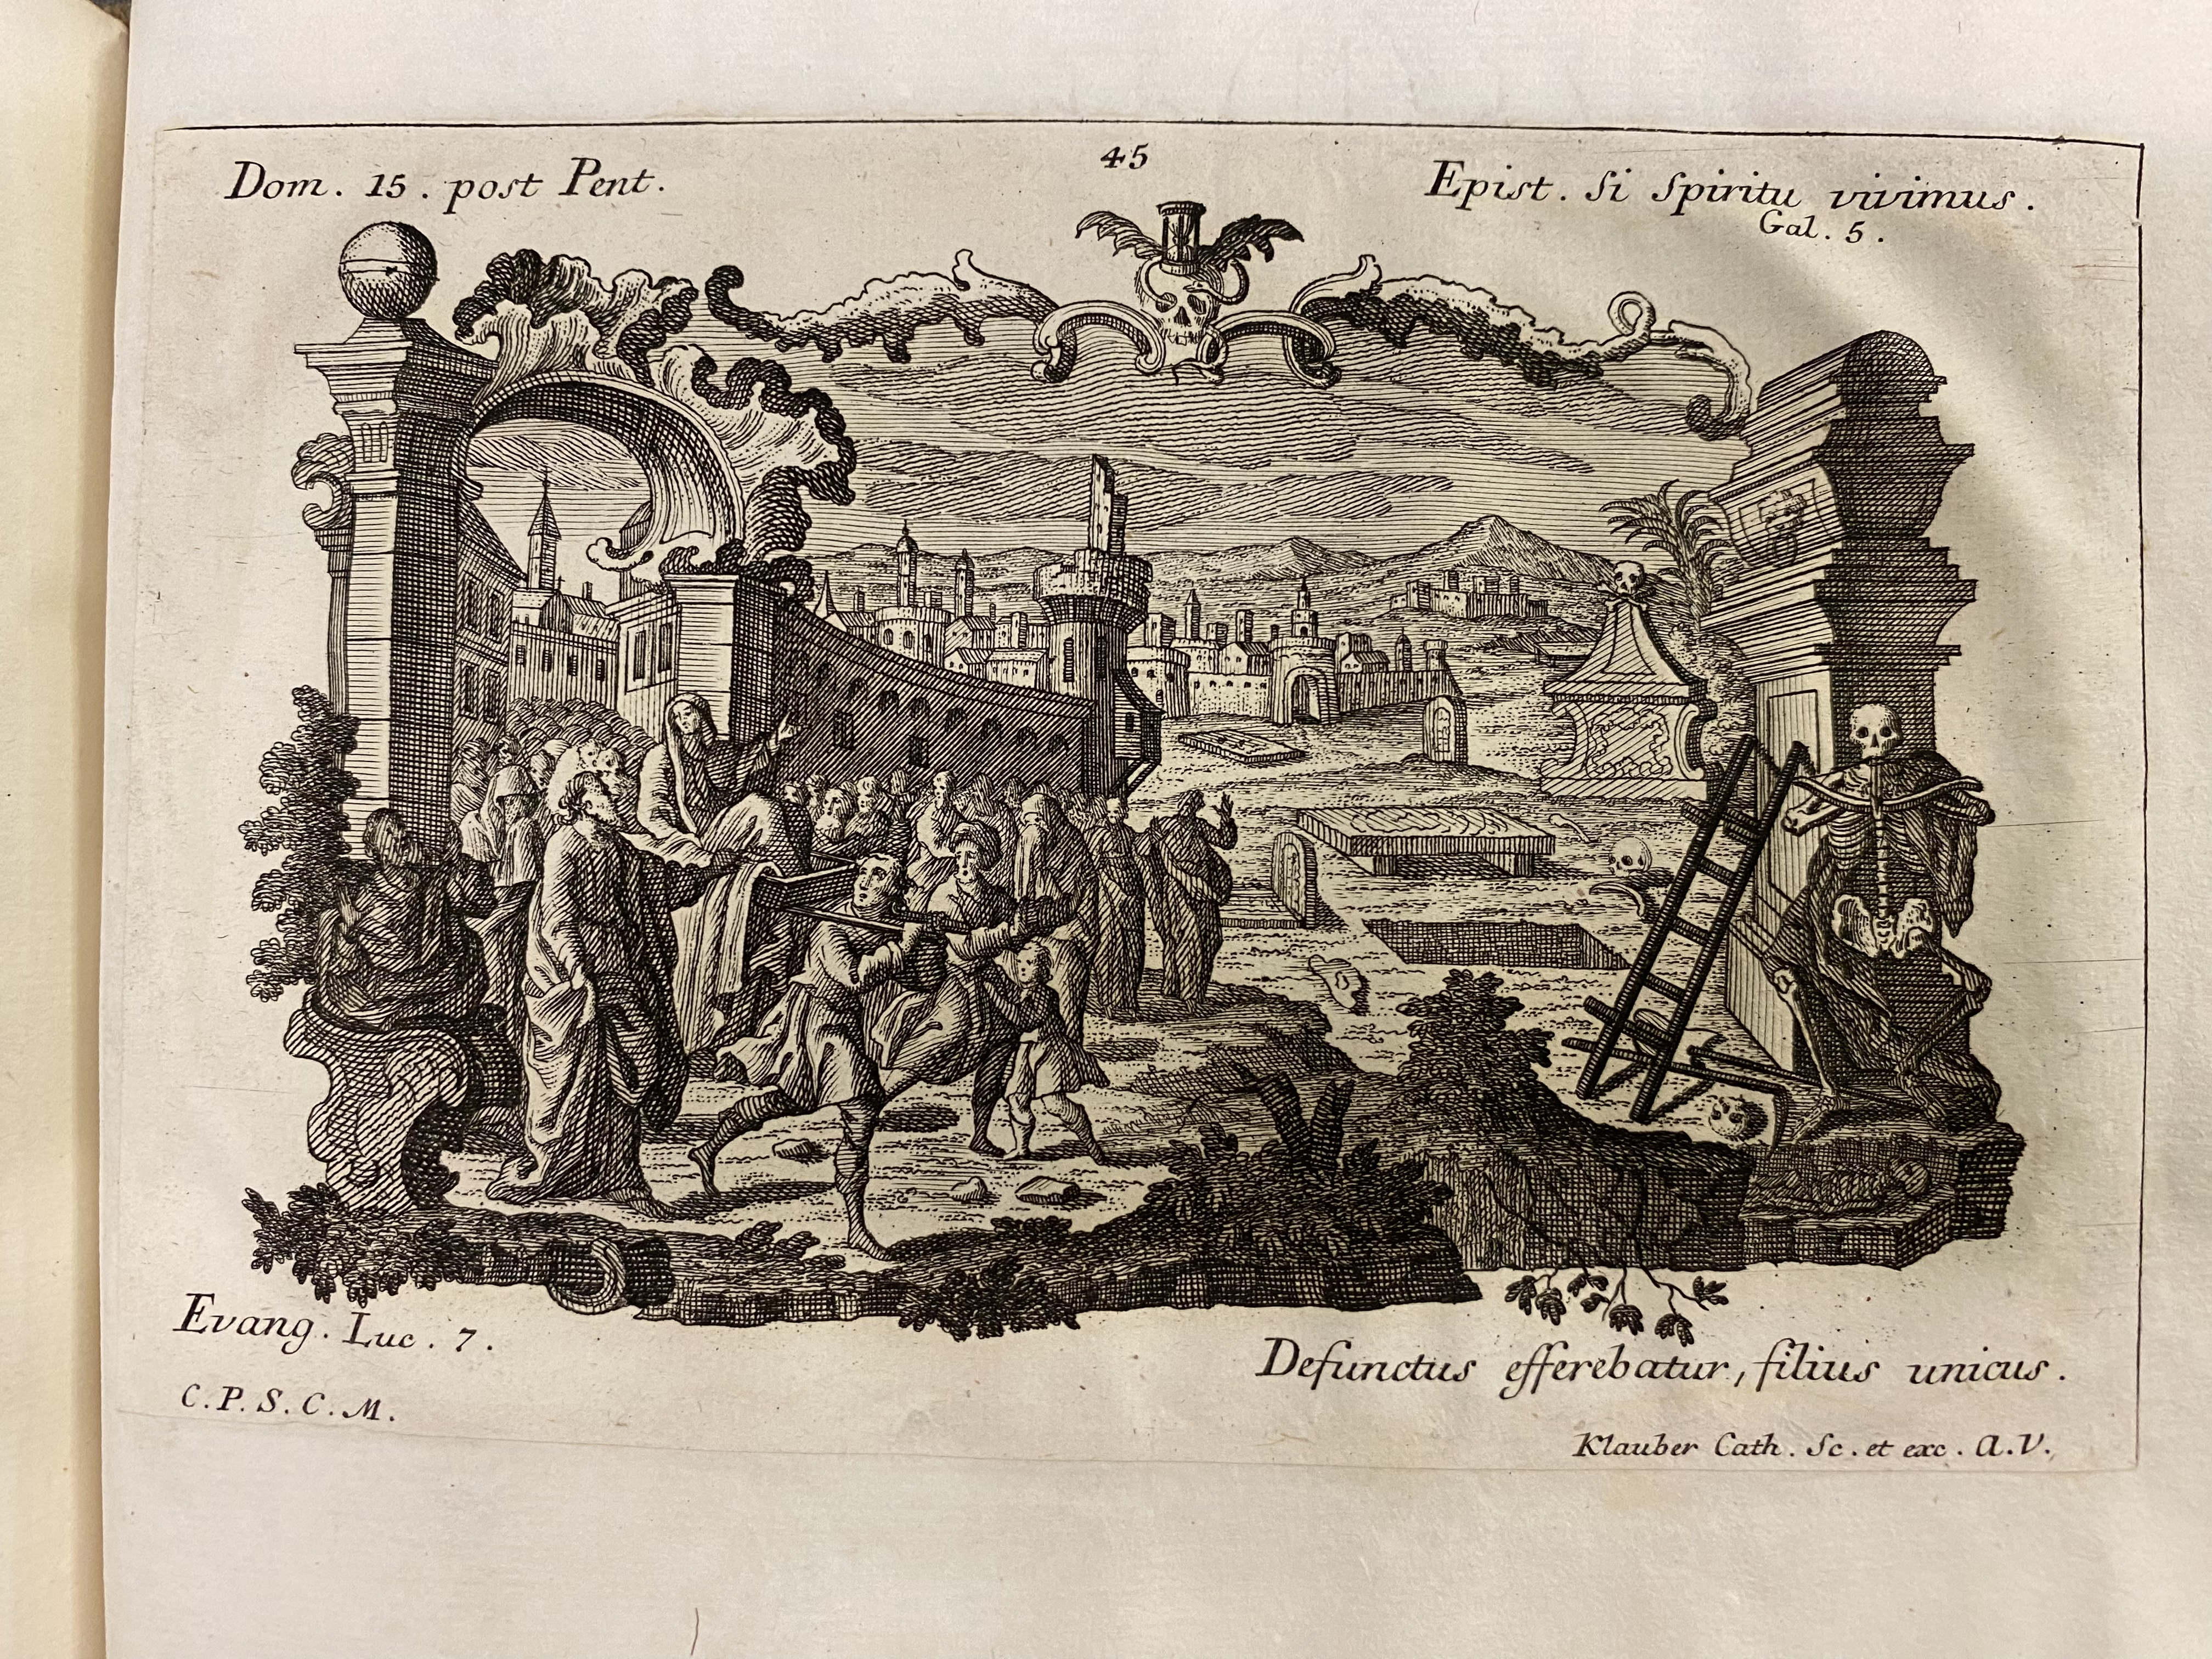 45
Dom. 15. post Pent.
Epist. Si Spiritu vivimus.
Gal. 5.
Evang. Luc. 7.
Defunctus efferebatur, filius unicus.
C. P. S. C. M.
Klauber Cath. Sc. et exc. A.V.